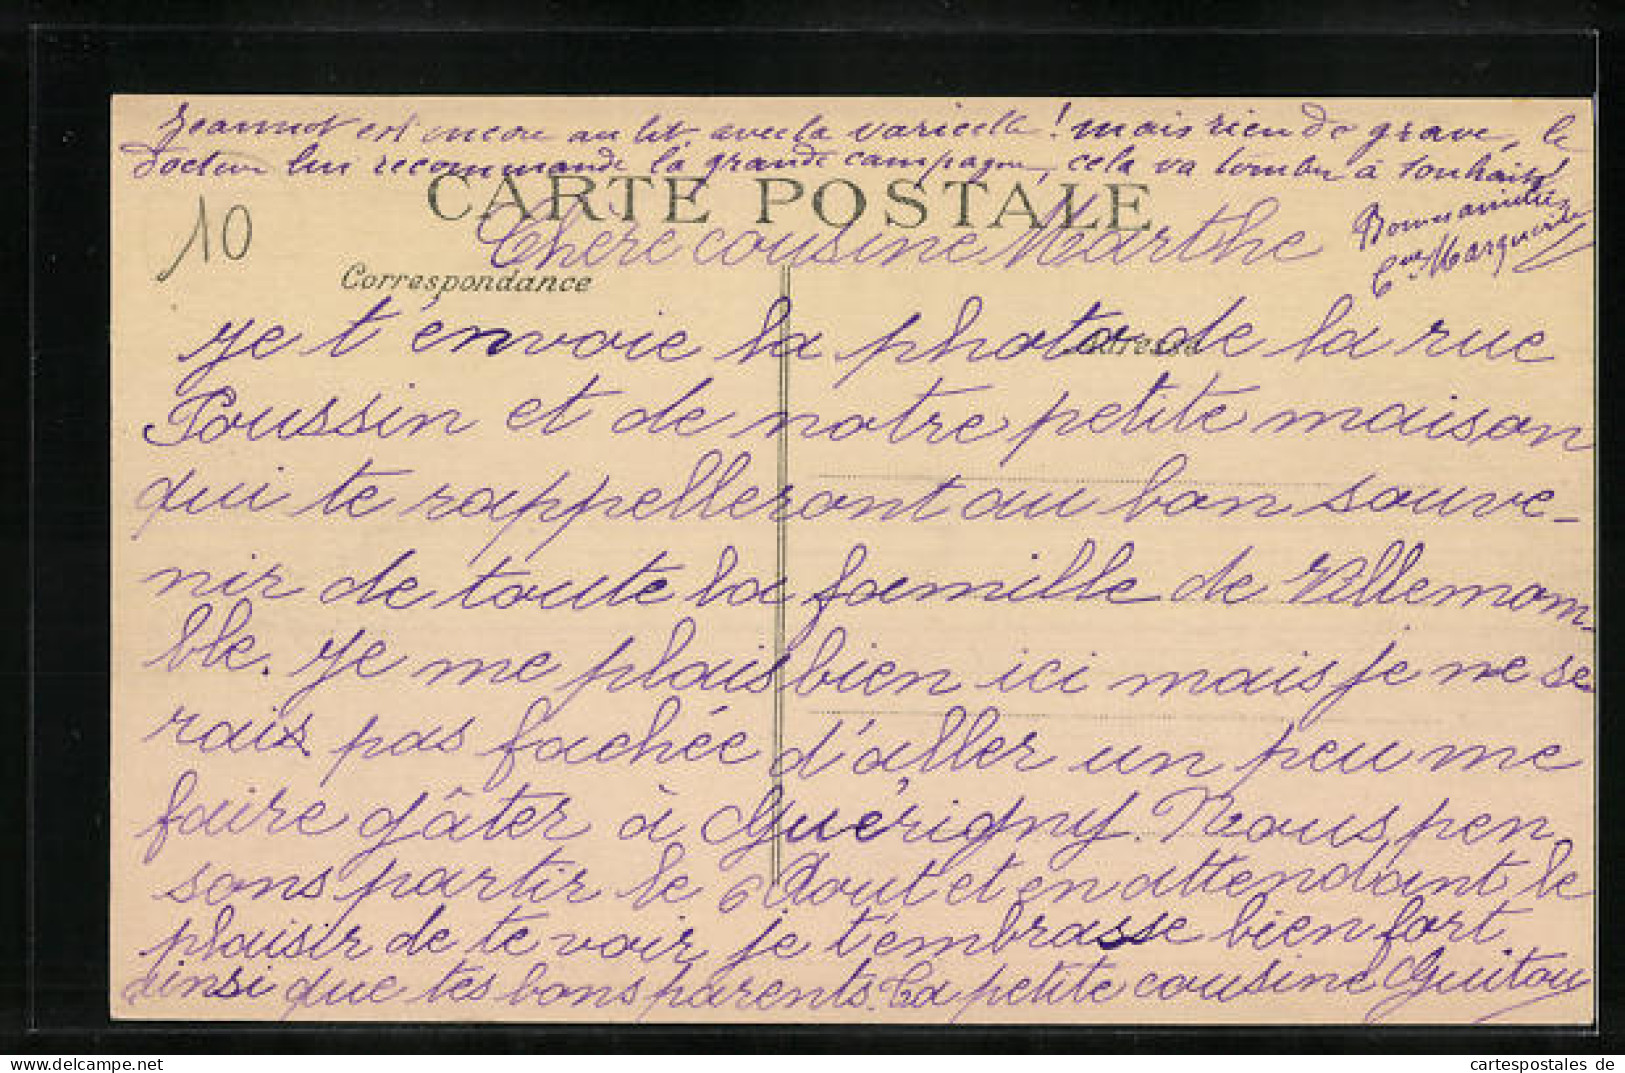 Jeannot est encore au lit avec la varicelle ! mais rien de grave, le
docteur lui recommande la grande campagne, cela va tomber à souhait !
CARTE POSTALE
10
Bonnes amitiés
Cne Marguerite
Chère cousine Marthe
Correspondance
Adresse
Je t'envoie la photo de la rue
Poussin et de notre petite maison
qui te rappelleront au bon souve-
nir de toute la famille de Villemom-
ble. Je me plais bien ici mais je ne se
rais pas fachée d'aller un peu me
faire gâter à Guérigny. Nous pen
sons partir le 6 Aout et en attendant le
plaisir de te voir je t'embrasse bien fort
ainsi que tes bons parents. La petite cousine Guitou
cartespostales de